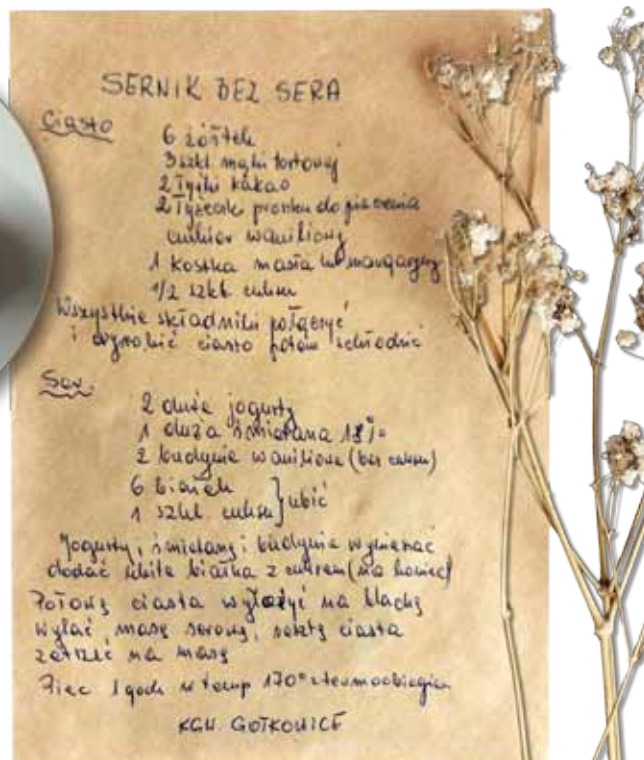 SERNIK BEZ SERA
Ciasto
6 żółtek
3 szkl mąki tortowej
2 łyżki kakao
2 łyżeczki proszku do pieczenia
cukier waniliowy
1 kostka masła lub margaryny
1/2 szkl cukru
Wszystkie składniki połączyć
i wyrobić ciasto potem schłodzić
Ser.
2 duże jogurty
1 duża śmietana 18%
2 budynie waniliowe (bez cukru)
6 białek
1 szkl cukru } ubić
Jogurty, śmietanę i budynie wymieszać
dodać ubite białka z cukrem (na koniec)
Połowę ciasta wyłożyć na blachę
wylać masę serową, resztę ciasta
zetrzeć na masę
Piec 1 godz w temp 170° z termoobiegiem
KGW. GOTKOWICE